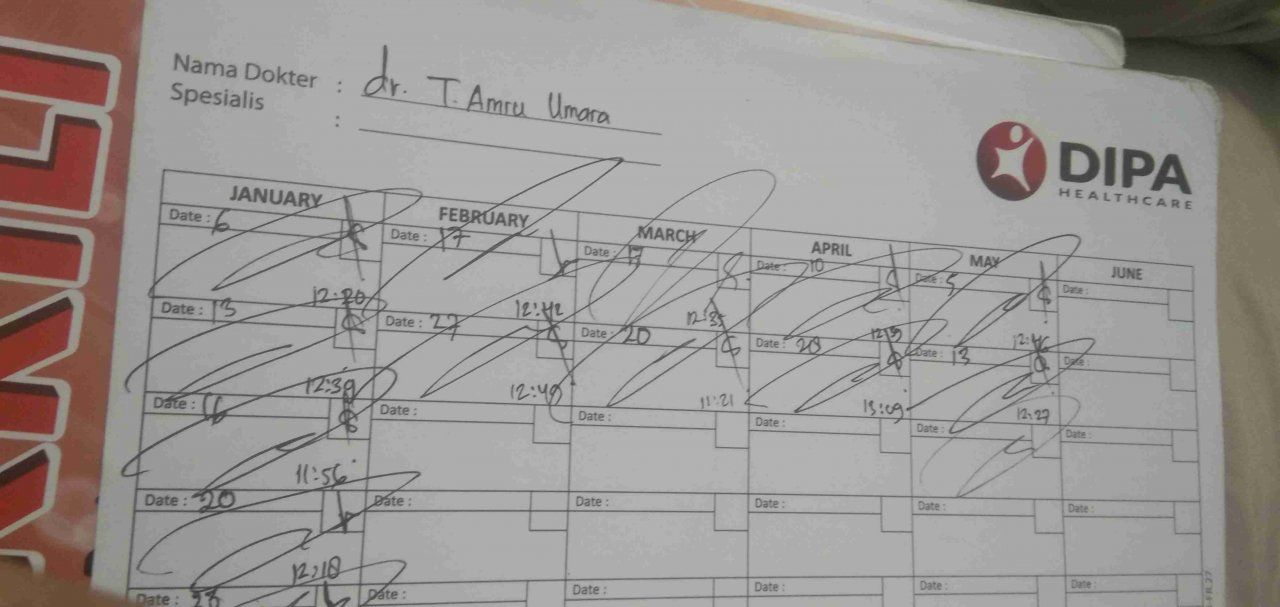 Nama Dokter : dr. T. Amru Umara
Spesialis :
DIPA
HEALTHCARE
JANUARY FEBRUARY MARCH APRIL MAY JUNE
Date : 6 Date : 17 Date : Date : 10 Date : 5 Date :
12:20 12:42 12:35 12:46
Date : 13 Date : 27 Date : 20 Date : 20 Date : 13 Date :
12:39 12:49 11:21 13:09 12:27
Date : 16 Date : Date : Date : Date : Date :
11:56
Date : 20 Date : Date : Date : Date : Date :
12:18
Date : 23 Date : Date : Date : Date : Date :